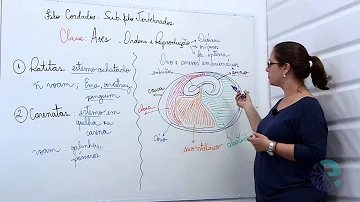 Filo Cordados: Sub-filo Vertebrados
Classe Aves. Ordens e Reprodução
Dióicos
Ovíparos
Fe. interna
① Ratitas: esterno achatado
ñ voam: Ema, avestruz,
pinguim
② Carenatas: esterno em
quilha ou
carena
voam: galinhas,
pássaros
Ovo e anexos embrionários
embrião
âmnio
casca
clara
cório
saco vitelínico
alantoide